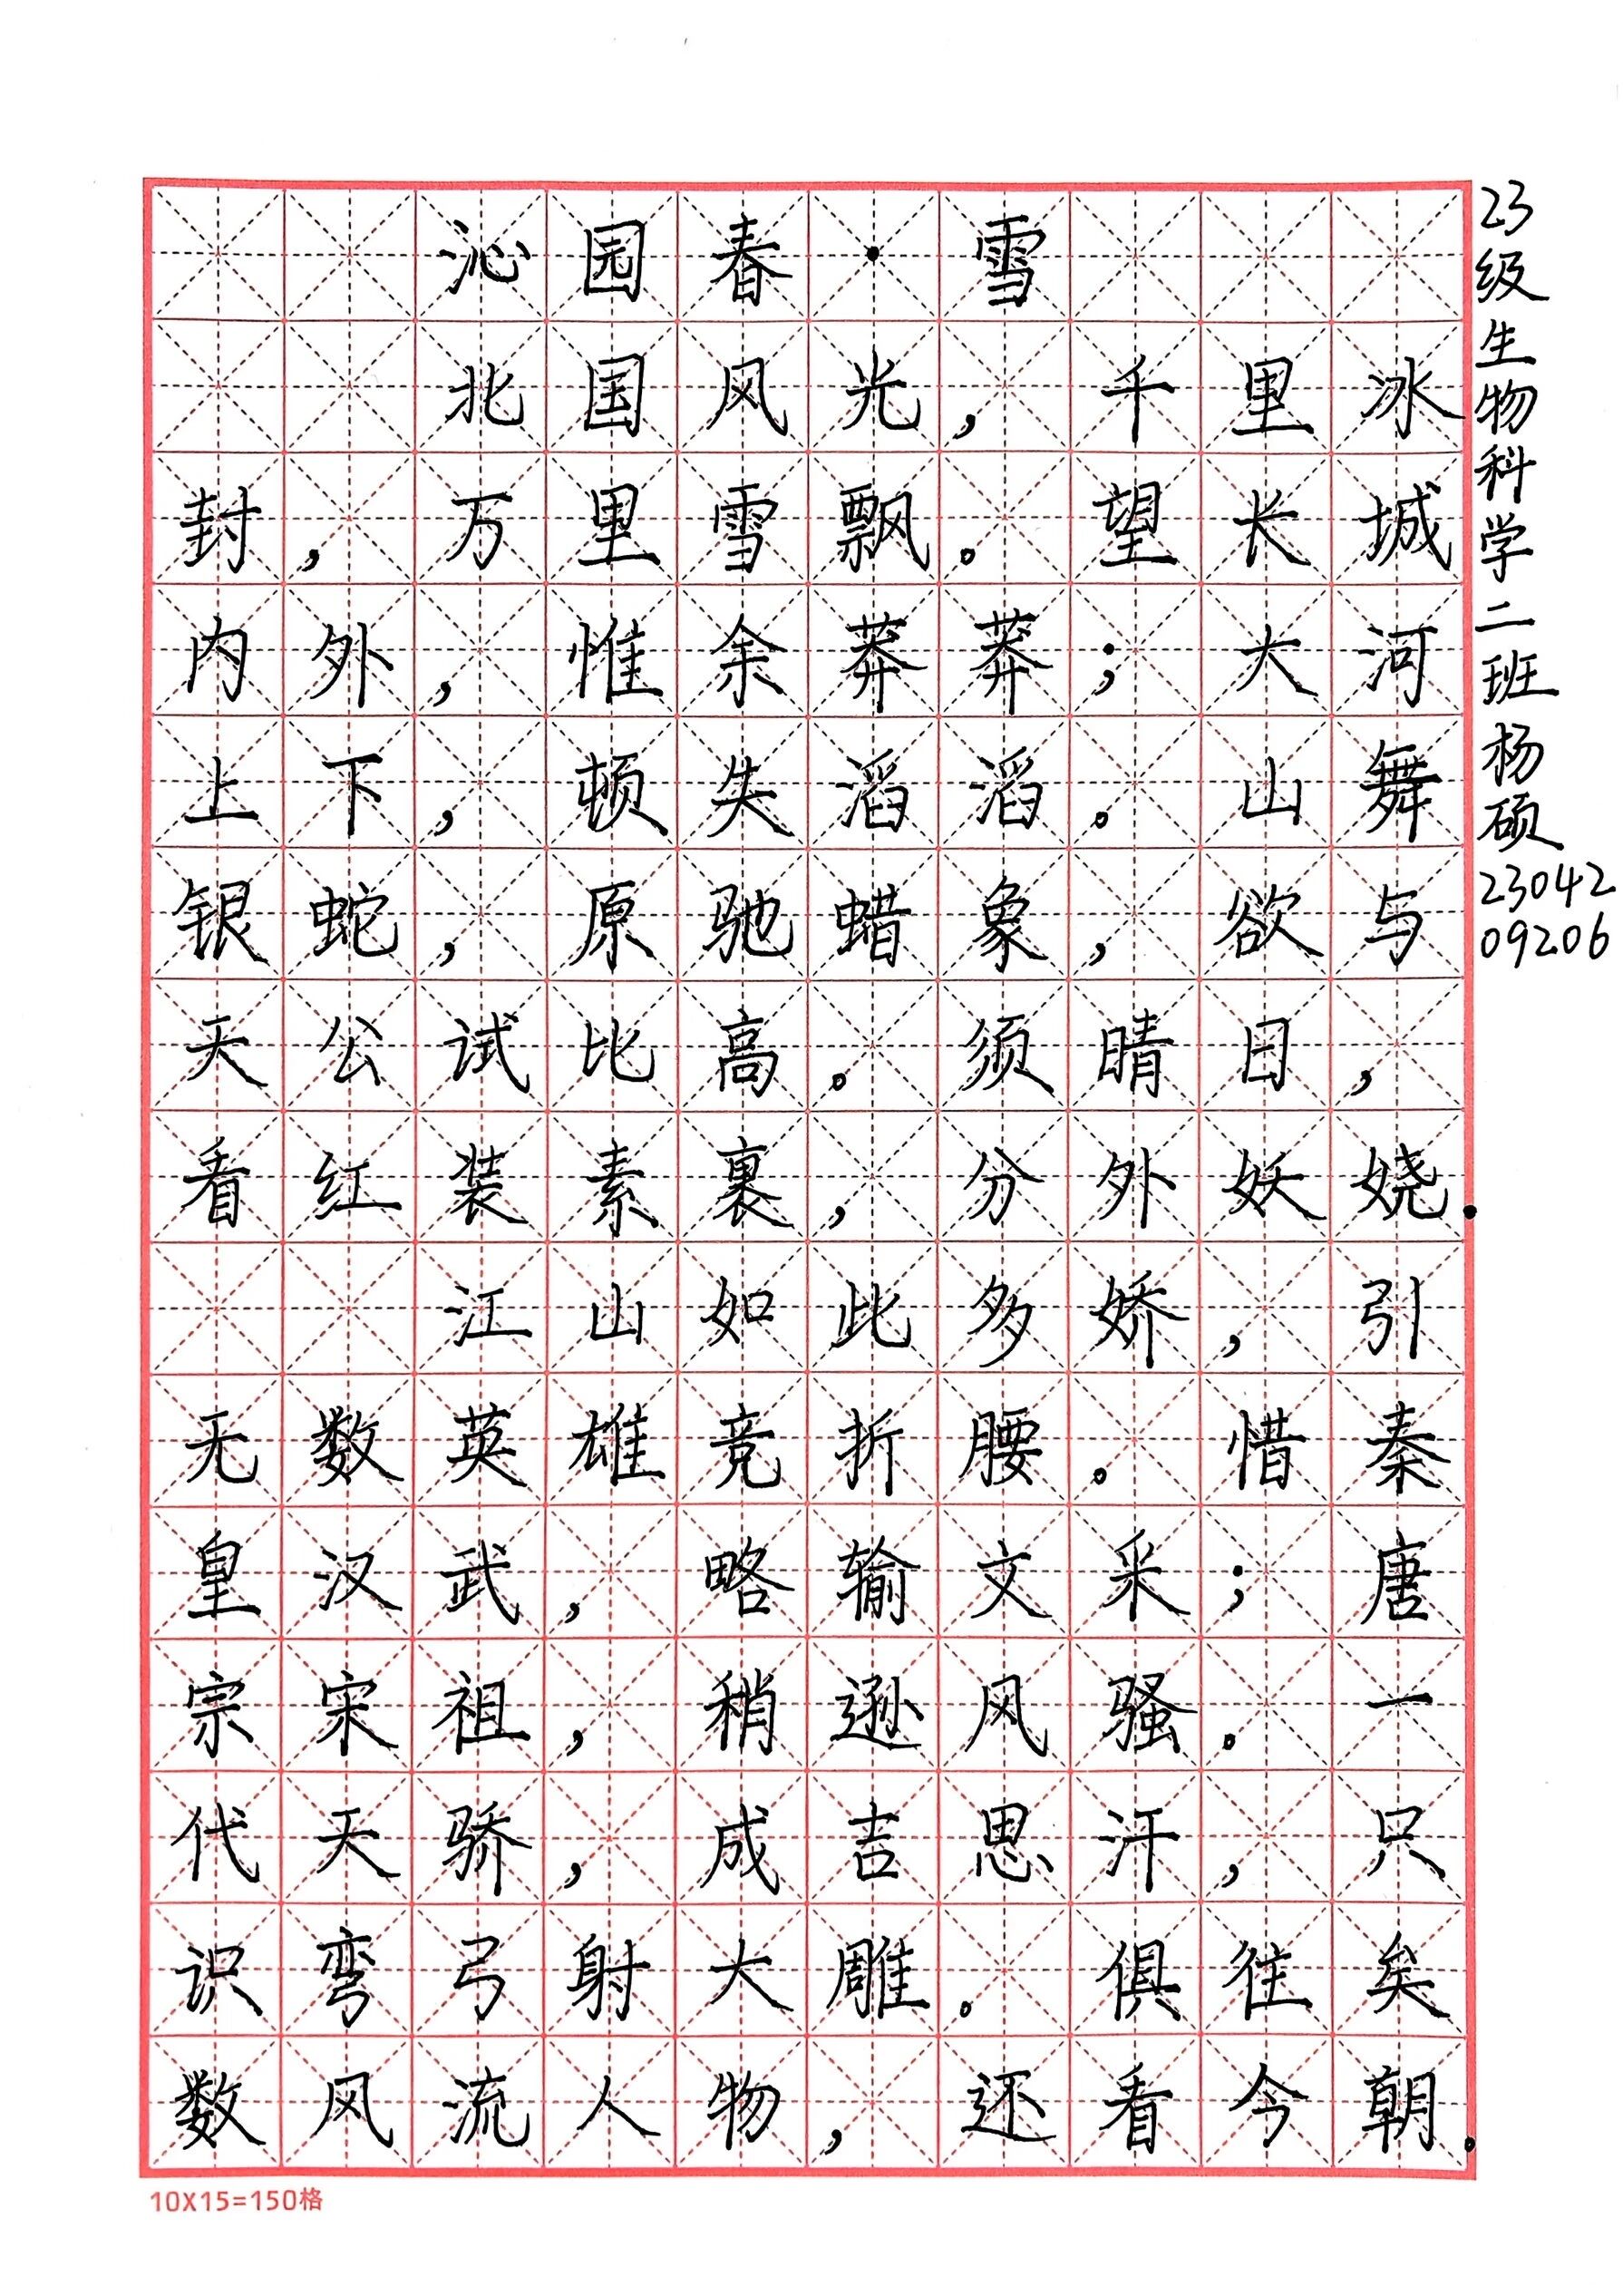 沁园春·雪
北国风光，千里冰
封，万里雪飘。望长城
内外，惟余莽莽；大河
上下，顿失滔滔。山舞
银蛇，原驰蜡象，欲与
天公试比高。须晴日，
看红装素裹，分外妖娆.
江山如此多娇，引
无数英雄竞折腰。惜秦
皇汉武，略输文采；唐
宗宋祖，稍逊风骚。一
代天骄，成吉思汗，只
识弯弓射大雕。俱往矣
数风流人物，还看今朝.
23级生物科学二班杨硕
23042
09206
10X15=150格